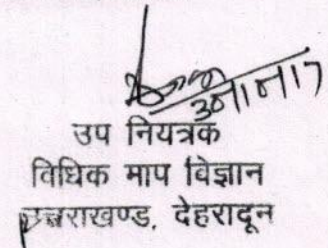 उप नियत्रक
विधिक माप विज्ञान
उत्तराखण्ड, देहरादून